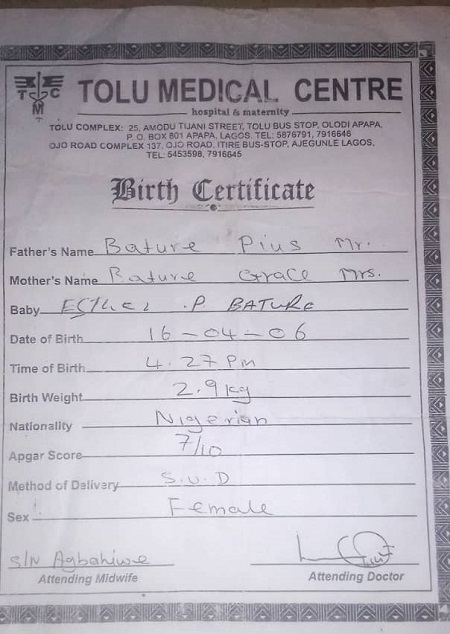 T C
M
TOLU MEDICAL CENTRE
hospital & maternity
TOLU COMPLEX: 25, AMODU TIJANI STREET, TOLU BUS STOP, OLODI APAPA,
P. O. BOX 801 APAPA, LAGOS. TEL: 5876791, 7916646
OJO ROAD COMPLEX 137, OJO ROAD, ITIRE BUS-STOP, AJEGUNLE LAGOS,
TEL: 5453598, 7916645
Birth Certificate
Father's Name Bature Pius Mr.
Mother's Name Bature Grace Mrs.
Baby Esther .P BATURE
Date of Birth 16-04-06
Time of Birth 4.27 Pm
Birth Weight 2.9kg
Nationality Nigerian
Apgar Score 7/10
Method of Delivery S.V.D
Sex Female
S/N Agbahiwe
Attending Midwife Attending Doctor